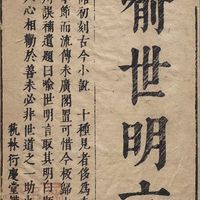 喻世明
初刻古今小說 十種見者侈爲
節而流傳未廣閣置可惜今板歸
誤補遺題曰喻世明言取其明白
人心相勸於善未必非世道之一助
藝林衍慶堂謹